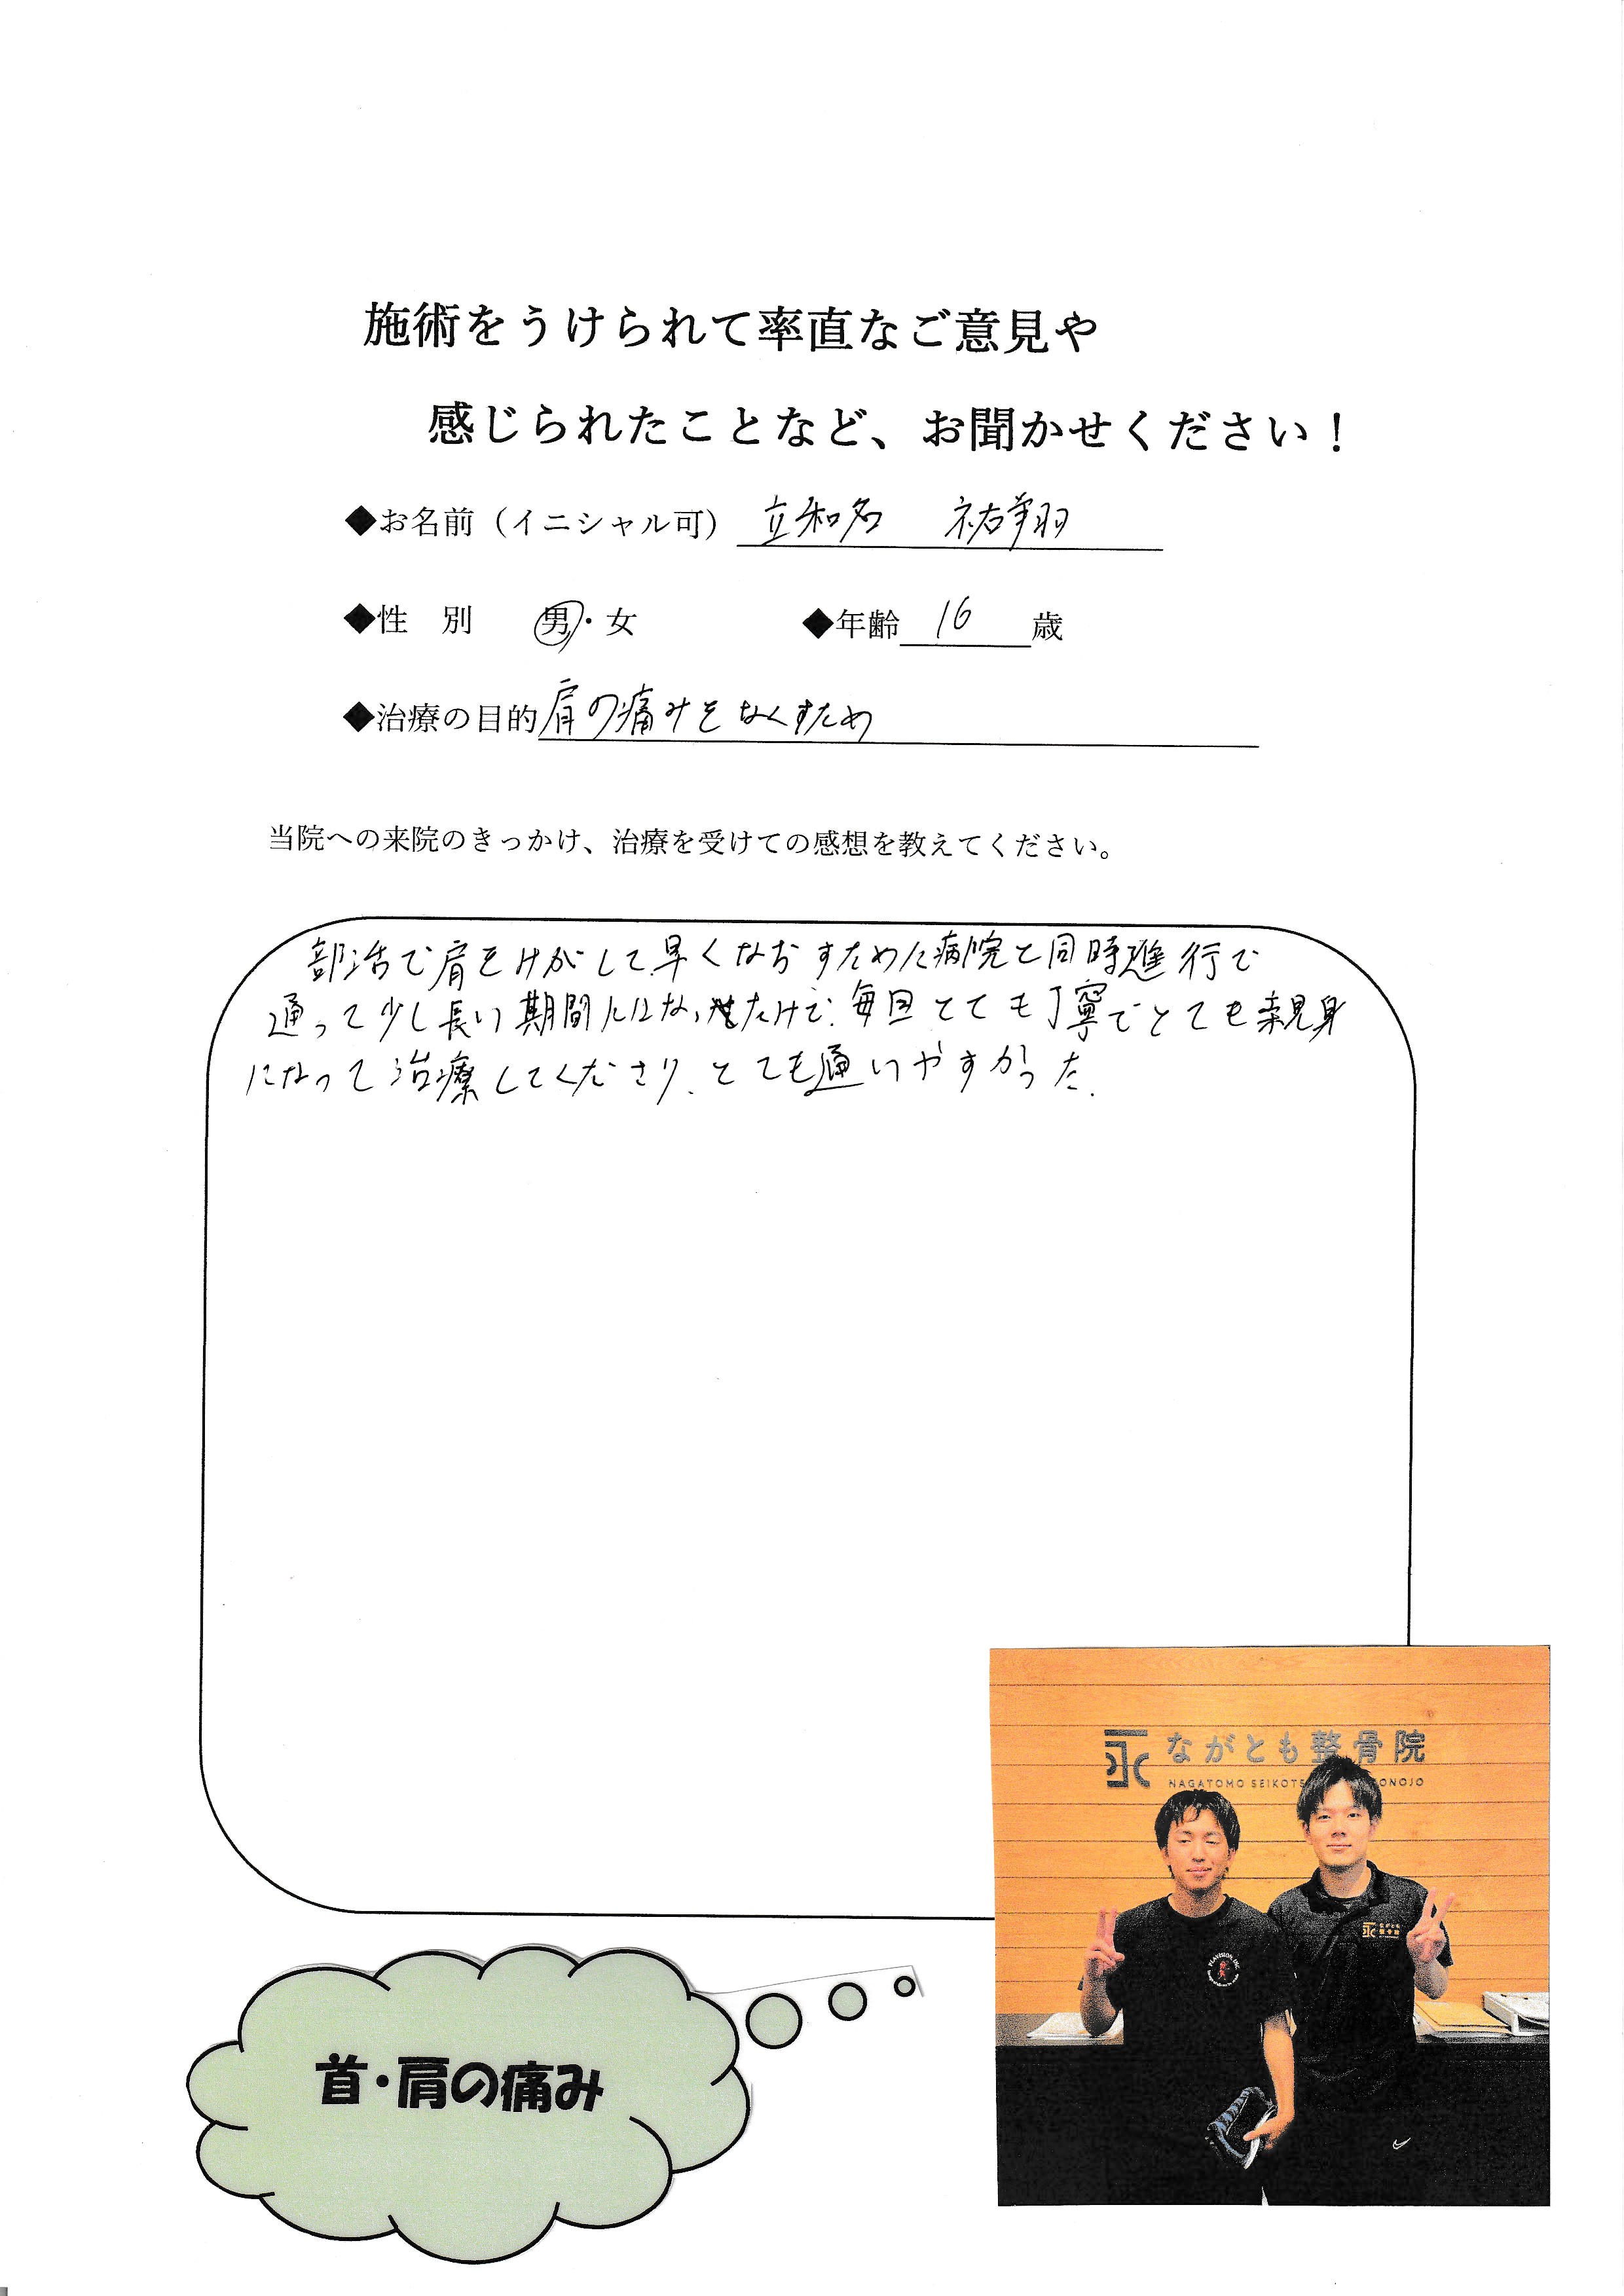 施術をうけられて率直なご意見や
感じられたことなど、お聞かせください！
◆お名前（イニシャル可） 立和名 祐翔
◆性 別 男・女 ◆年齢 16 歳
◆治療の目的 肩の痛みをなくすため
当院への来院のきっかけ、治療を受けての感想を教えてください。
部活で肩をけがして、早くなおすために病院と同時進行で
通って少し長い期間にはなったけで、毎回とても丁寧でとても親身
になって治療してくださり、とても通いやすかった.
首・肩の痛み
永 ながとも整骨院
NAGATOMO SEIKOTS ONOJO
PLAVISION, INC.
ながとも
整骨院